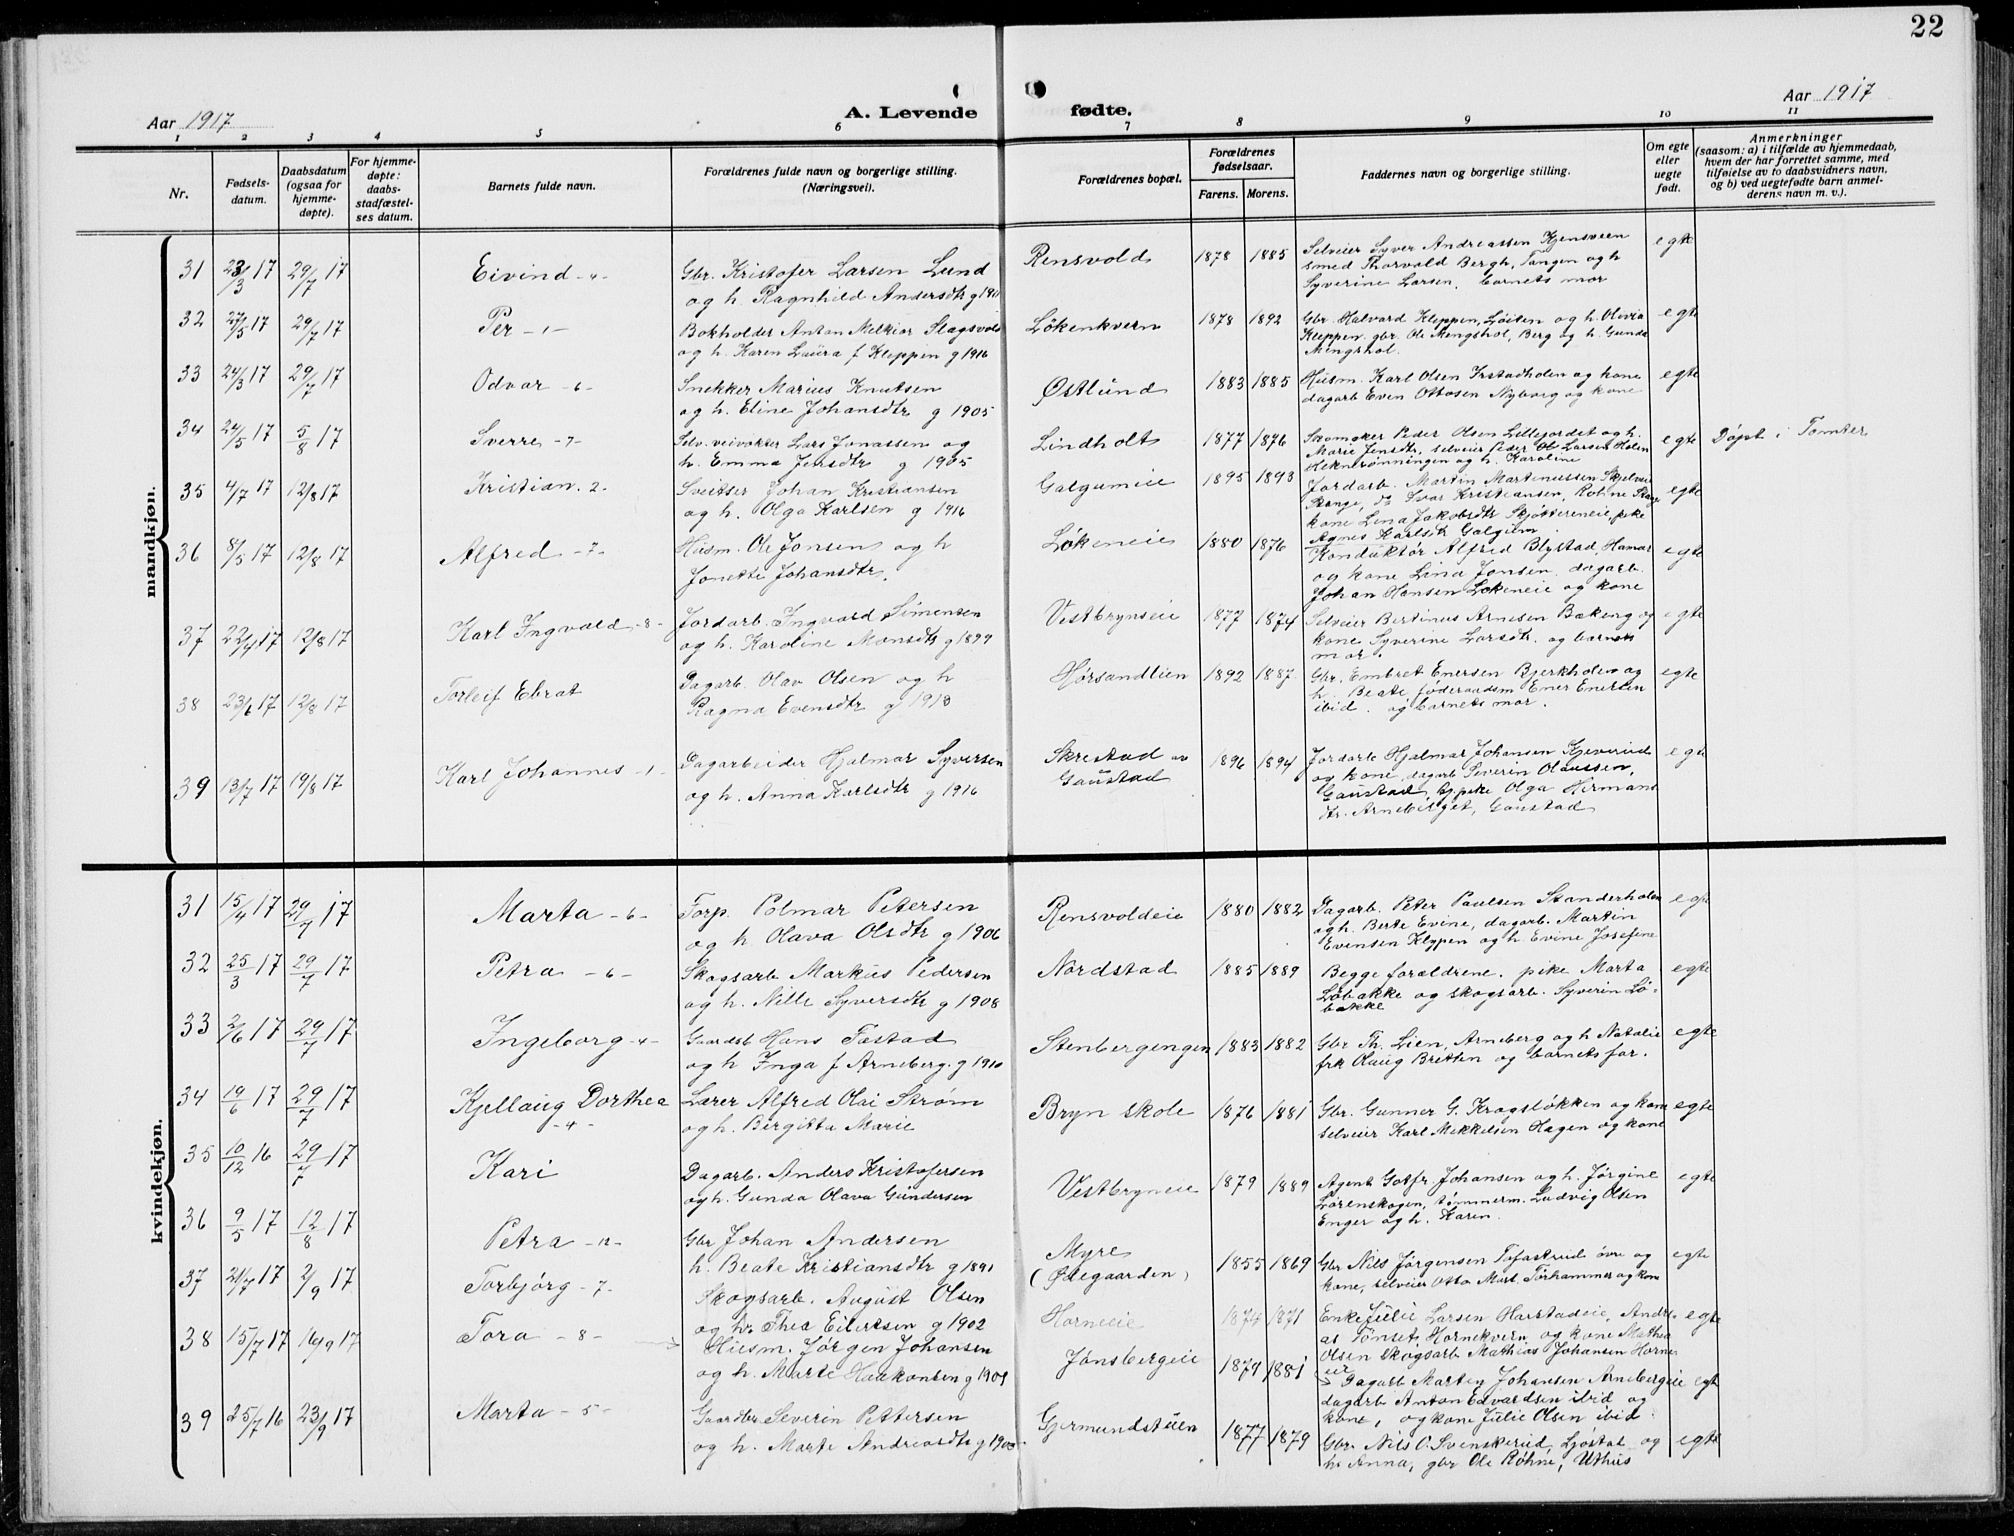 22
Aar 1917
A. Levende fødte.
Aar 1917
1 2 3 4 5 6 7 8 9 10 11
Nr.
Fødsels-
datum.
Daabsdatum
(ogsaa for
hjemme-
døpte).
For hjemme-
døpte:
daabs-
stadfæstel-
ses datum.
Barnets fulde navn.
Forældrenes fulde navn og borgerlige stilling.
(Næringsvei).
Forældrenes bopæl.
Forældrenes
fødselsaar.
Farens. Morens.
Faddernes navn og borgerlige stilling.
Om egte
eller
uegte
født.
Anmerkninger
(saasom: a) i tilfælde av hjemmedaab,
hvem der har forrettet samme, med
tilføielse av to daabsvidners navn,
og b) ved uegtefødte barn anmel-
derens navn m. v.).
mandkjøn.
31 23/3 17 29/7 17 Eivind -4- Gbr. Kristofer Larsen Lund
og h. Ragnhild Andersdtr g 1911
Rensvold 1878 1885
Selveier Syver Andreassen Kjensveen
smed Thorvald Bergh, Tangen og h
Syverine Larsen. barnets mor
egte
32 27/5 17 29/7 17 Per -1- Bokholder Anton Melkior Slagsvold
og h. Karen Laura f Kleppen g 1916
Løkenkvern 1878 1892
Gbr. Halvard Kleppen, Løiten og h. Olivia
Kleppen. gbr. Ole Mengshol, Berg og h. Gunda
Mengshol.
egte
33 24/3 17 29/7 17 Odvar -6- Snekker Marius Knutsen
og h. Eline Johansdtr g 1905
Østlund 1883 1885
Husm. Karl Olsen Irstadholen og kone
dagarb Even Ottosen Nyborg og kone
egte
34 24/5 17 5/8 17 Sverre -7- Selv. veivokter Lars Jonassen og
h. Emma Jensdtr g 1905
Lindholt 1877 1876
Skomaker Peder Olsen Lillejordet og h.
Marie Jensdtr, selveier Peder Ole Larsen Holen
Heknerønningen og h. Karoline
egte Døpt i Tomter
35 4/7 17 12/8 17 Kristian. 2. Sveitser Johan Kristiansen
og h. Olga Karlsen g 1916
Galgumeie 1895 1893
Jordarb. Martin Martinussen
Stange, do Ivar Kristiansen, Rohne Stange
kone Lina Jakobsdtr Skjøttereneie, pike
Agnes Karlsdtr Galgum.
egte
36 8/5 17 12/8 17 Alfred -7- Husm. Ole Jonsen og h
Jonette Johansdtr.
Løkeneie 1880 1876
Konduktør Alfred Blystad, Hamar
og kone Lina Jonsen. dagarb.
Johan Hansen Løkeneie og kone
egte
37 22/4 17 12/8 17 Karl Ingvald -8- Jordarb. Ingvald Simensen
og h. Karoline Monsdtr g 1899
Vestbrynseie 1877 1874
Selveier Bertinus Arnesen Bakeng og
kone Syverine Larsdtr. og barnets
mor.
egte
38 23/6 17 12/8 17 Torleif Ebrat Dagarb. Olav Olsen og h
Ragna Evensdtr g 1913
Hørsandlien 1892 1887
Gbr. Embret Enersen Bjerkholen og
h. Beate, føderaadsm Ener Enersen
ibid. og barnets mor.
egte
39 13/7 17 19/8 17 Karl Johannes -1- Dagarbeider Hjalmar Syversen
og h. Anna Karlsdtr g 1916
Skrestad av
Gaustad 1896 1894
Jordarb Hjalmar Johansen Kjeverud
og kone, dagarb Severin Olaussen,
Gaustad, tj. pike Olga Hermans
dtr. Arneberget, Gaustad
egte
kvindekjøn.
31 15/4 17 29/7 17 Marta -6- Torp. Polmar Petersen
og h Olava Olsdtr g 1906
Rensvoldeie 1880 1882
Dagarb. Peter Paulsen Standerholen
og h. Berte Evine, dagarb. Martin
Evensen Klypen og h. Evine Josefine
egte
32 25/3 17 29/7 17 Petra -6- Skogsarb Markus Pedersen
og h. Nille Syversdtr g 1908
Nordstad 1885 1889
Begge forældrene. pike Marta
Løbakke og skogsarb. Syverin Lø-
bakke
egte
33 2/6 17 29/7 17 Ingeborg -4- Gaardsb Hans Tostad
og h Inga f Arneberg. g 1910
Stenbergengen 1883 1882
Gbr Th. Lien, Arneberg og h Natalie
frk Olaug Bretten og barnets far.
egte
34 19/6 17 29/7 17 Kjellaug Dorthea
-4-
Lærer Alfred Olai Strøm
og h. Birgitta Marie
Bryn skole 1876 1881
Gbr. Gunner G. Krogsløkken og kone
selveier Karl Mekkelsen Hagen og kone
egte
35 10/12 16 29/7 17 Kari Dagarb. Anders Kristofersen
og h. Gunda Olava Gundersen
Vestbryneie 1879 1889
Agent Gotfr Johansen og h. Jørgine
Lørenskogen, tømmerm. Ludvig Olsen
Enger og h. Karen.
egte
36 9/5 17 12/8 17 Petra -12- Gbr Johan Andersen
h. Beate Kristiansdtr g 1891
Myre
(Ødegaarden) 1855 1869
Gbr Nils Jørgensen Tofastrud øvre og
kone, selveier Otto Mart. Torhammer og kone
egte
37 21/7 17 2/9 17 Torbjørg -7- Skogsarb. August Olsen
og h. Thea Eilertsen g 1902
Horneeie 1874 1871
Enke Julie Larsen Harstadeie, Andre-
as Tønset, Hornekvern og kone Mathea
Olsen skogsarb Mathias Johansen Horne
eie
egte
38 15/7 17 16/9 17 Tora -8- Husm. Jørgen Johansen
og h. Marte Haakonsen g 1901
Jønsbergeie 1879 1881
Dagarb Marten Johansen Arnebergeie
dagarb Anton Edvardsen ibid og
kone, og kone Julie Olsen ibid.
egte
39 25/7 16 23/9 17 Marta -5- Gaardbr Severin Pettersen
og h. Marte Andreasdtr g 1900
Gjermundstuen 1877 1879
Gbr. Nils O. Svenskerud Ljøstad og
h. Anna, gbr Ole Røhne, Uthus
egte